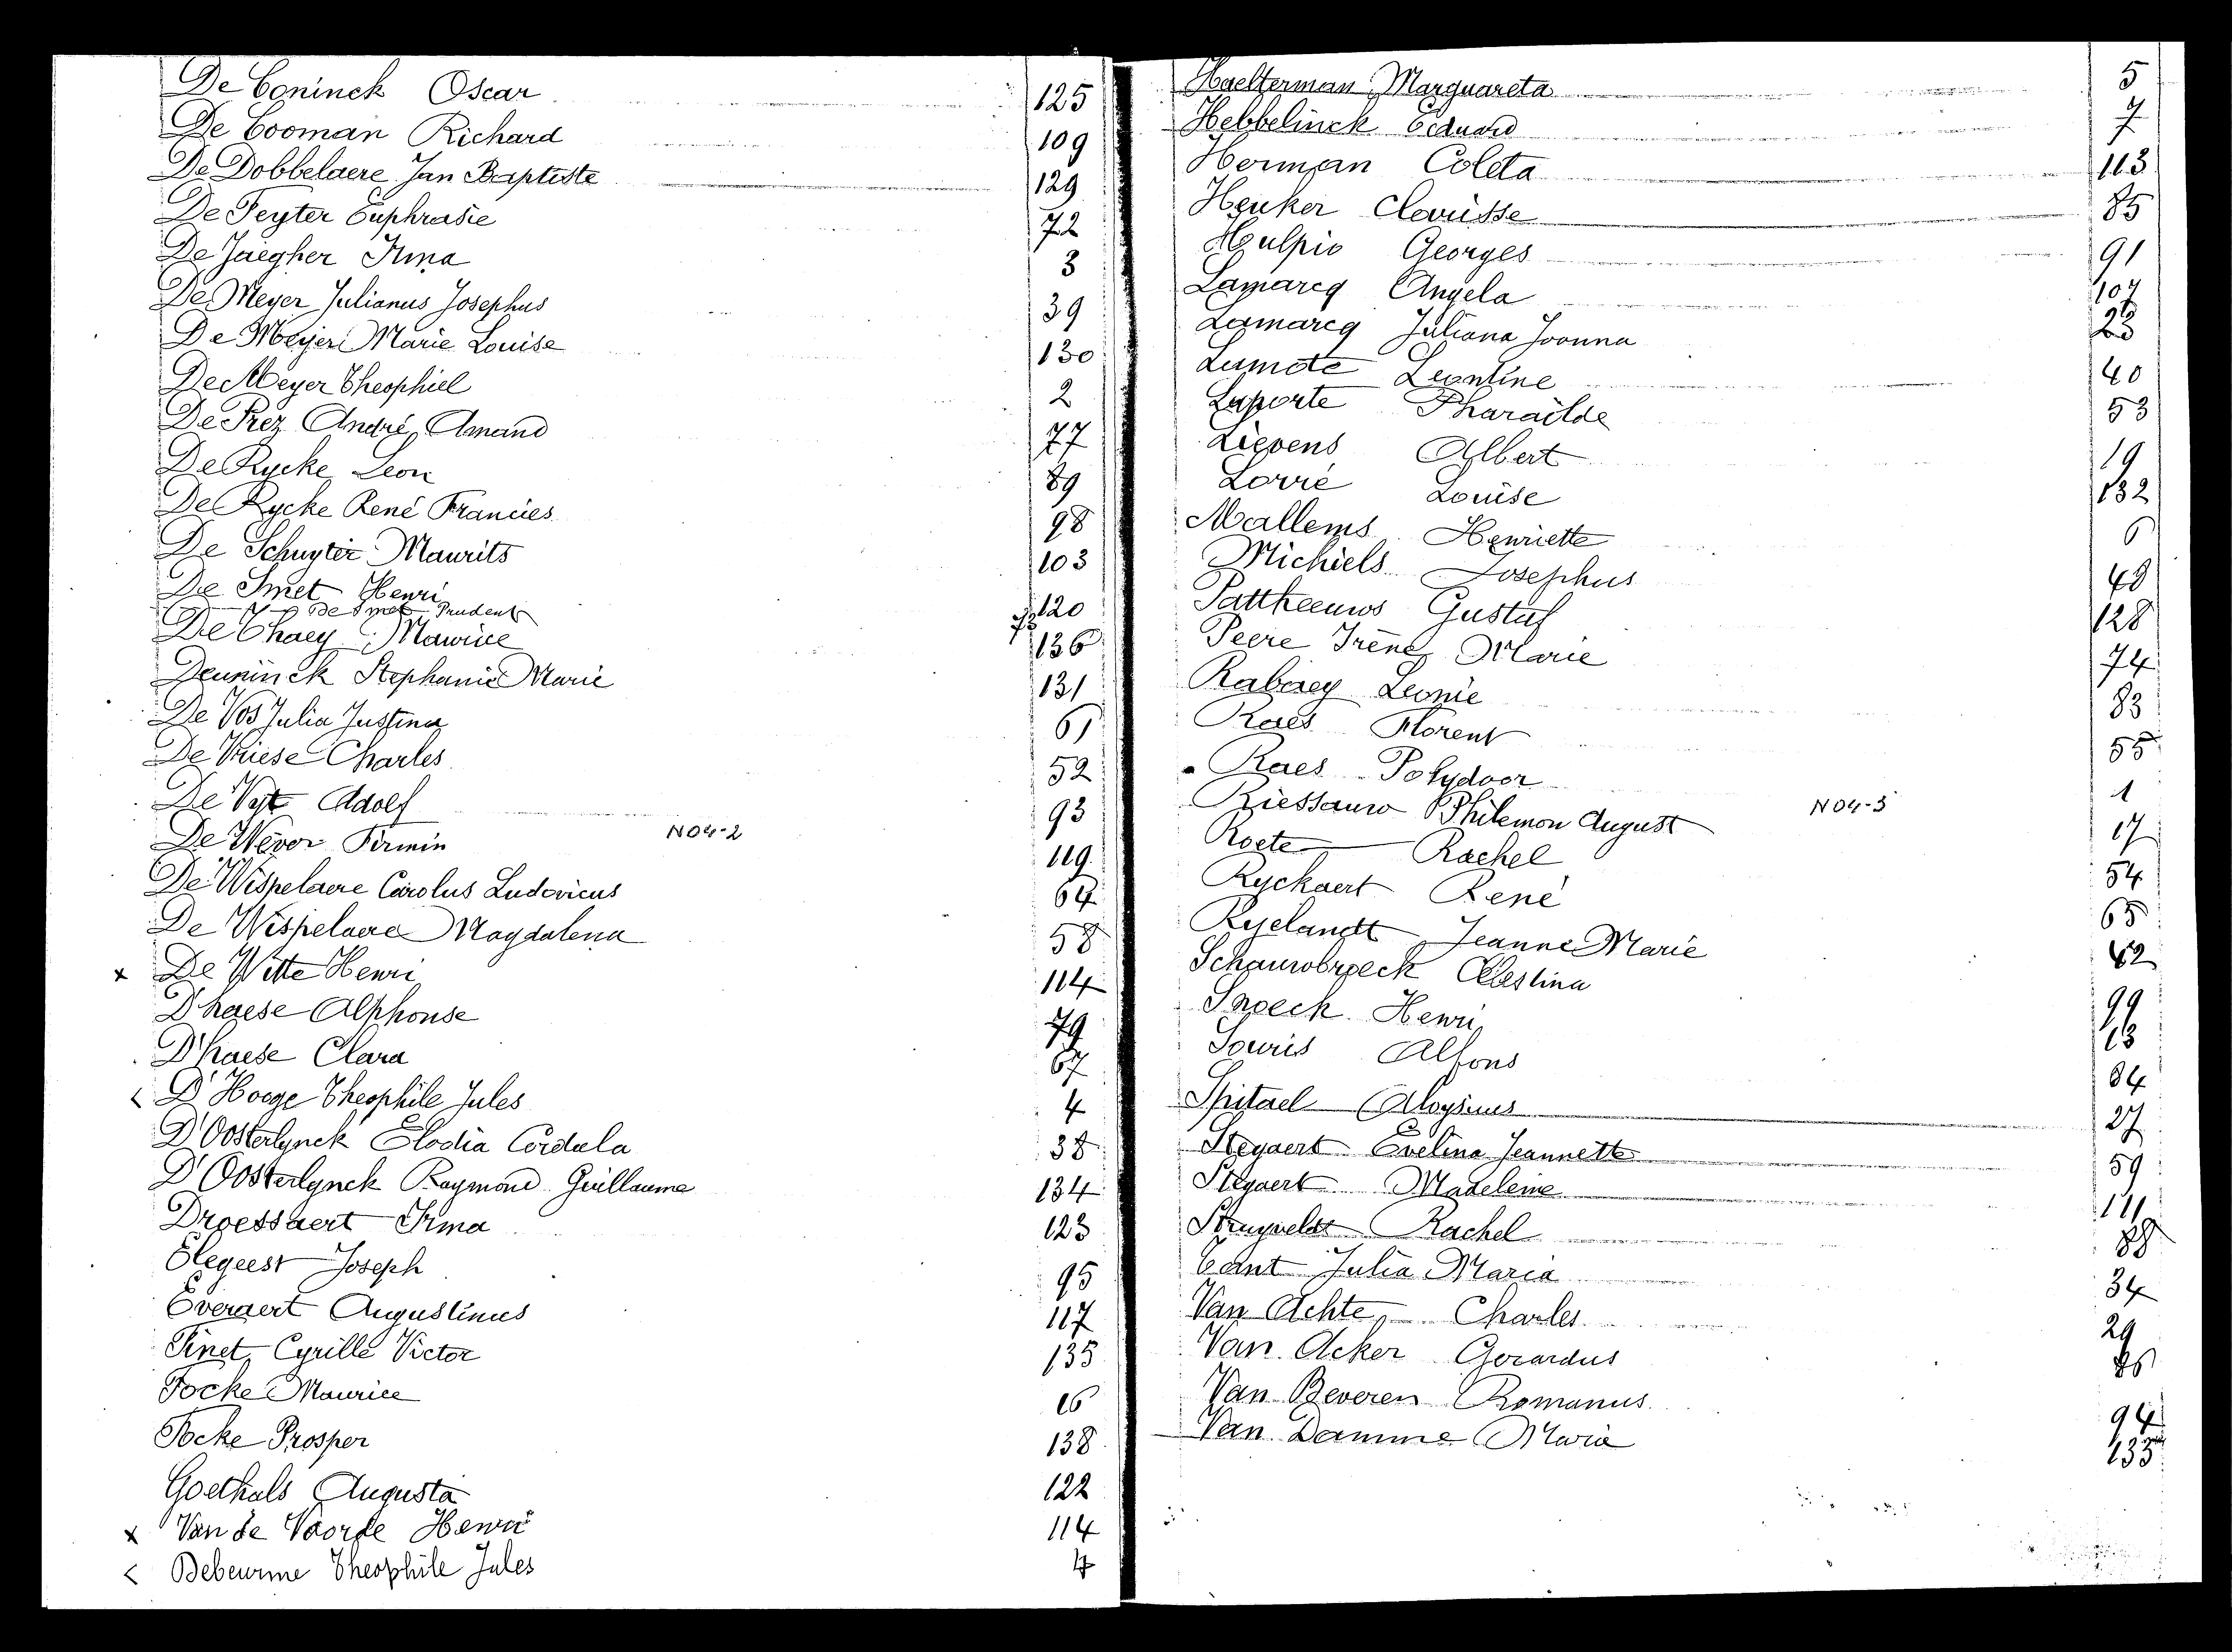 De Coninck Oscar 125
De Cooman Richard 109
De Dobbelaere Jan Baptiste 129
De Feyter Euphrasie 72
De Jaegher Irma 3
De Meyer Julianus Josephus 39
De Meyer Marie Louise 130
De Meyer Theophiel 2
De Prez André Amand 77
De Rycke Leon 89
De Rycke René Francies 98
De Schuyter Maurits 103
De Smet Henri 120
De Smet Prudent 73
De Thaey Maurice 136
Deuninck Stephanie Marie 131
De Vos Julia Justina 61
De Vriese Charles 52
De Vyt Adolf 93
De Wever Firmin NO4-2 119
De Wispelaere Carolus Ludovicus 64
De Wispelaere Magdalena 58
x De Witte Henri 114
D'haese Alphonse 79
D'haese Clara 67
< D'Hooge Theophile Jules 4
D'Oosterlynck Elodia Cordula 38
D'Oosterlynck Raymond Guillaume 134
Droessaert Irma 123
Elegeest Joseph 95
Everaert Augustinus 117
Finet Cyrille Victor 135
Focke Maurice 16
Focke Prosper 138
Goethals Augusta 122
x Van de Voorde Henri 114
< Debeurme Theophile Jules 4
Haelterman Marguareta 5
Hebbelinck Eduard 7
Herman Coleta 113
Heuker Clarisse 85
Hulpio Georges 91
Lamarcq Angela 107
Lamarcq Juliana Joanna 23
Lamote Leontine 40
Laporte Pharaïlde 53
Lievens Albert 19
Lorré Louise 132
Mallems Henriette 6
Michiels Josephus 48
Pattheeuws Gustaf 128
Peere Irène Marie 74
Rabaey Leonie 83
Raes Florent 55
Raes Polydoor 1
Riessauw Philemon August NO4-3 17
Roete Rachel 54
Ryckaert René 65
Ryelandt Jeanne Marie 62
Schauwbroeck Celestina 99
Snoeck Henri 13
Souris Alfons 84
Spitael Aloysius 27
Stegaert Evelina Jeannette 59
Stegaert Madeleine 111
Struyveldt Rachel 88
Cant Julia Maria 34
Van Achte Charles 29
Van Acker Gerardus
Van Beveren Romanus 94
Van Damme Maria 133